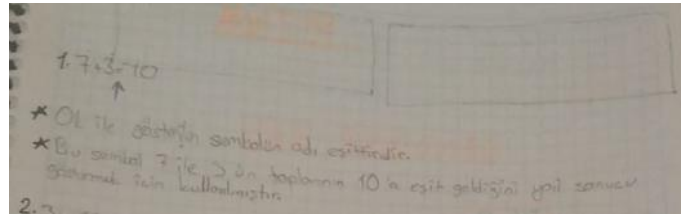 1. 7+3=10
↑
* Ok ile gösterilen sembolün adı eşittirdir.
* Bu sembol 7 ile 3 ün toplamının 10'a eşit geldiğini yani sonucu
göstermek için kullanılmıştır.
2.